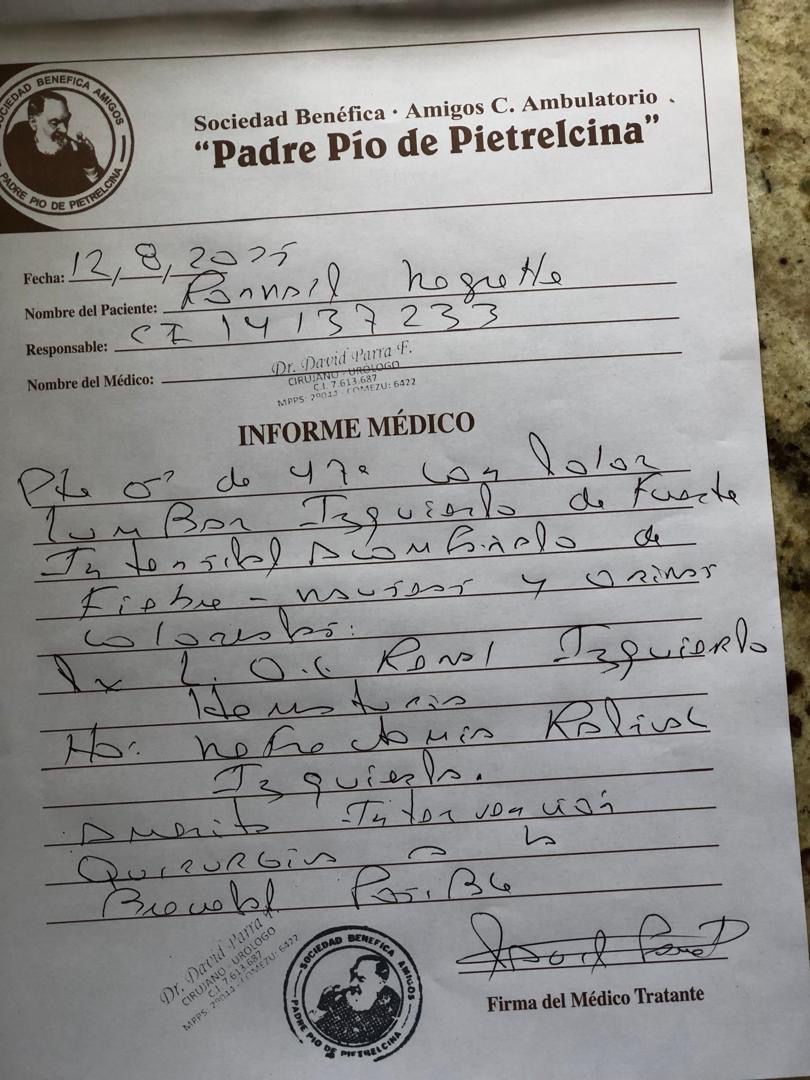 SOCIEDAD BENEFICA AMIGOS
PADRE PIO DE PIETRELCINA
Sociedad Benéfica · Amigos C. Ambulatorio
“Padre Pío de Pietrelcina”
Fecha: 12, 8, 2025
Nombre del Paciente: Ronnail Negrette
Responsable: CI 14137233
Nombre del Médico:
Dr. David Parra F.
CIRUJANO - UROLOGO
C.I. 7.613.687
MPPS: COMEZU: 6422
INFORME MÉDICO
Pte ♂ de 47a con Dolor
Lumbar Izquierdo de Fuerte
Intensidad Acompañado de
Fiebre - nauseas y orinas
coloreadas:
Dx L.O.E Renal Izquierdo
Hematuria
Nefrectomia Radical
Izquierda.
Amerita Intervención
Quirurgica a la
Brevedad Posible
Dr. David Parra F.
CIRUJANO - UROLOGO
C.I. 7.613.687
MPPS: COMEZU: 6422
SOCIEDAD BENEFICA AMIGOS
PADRE PIO DE PIETRELCINA
David Parra
Firma del Médico Tratante